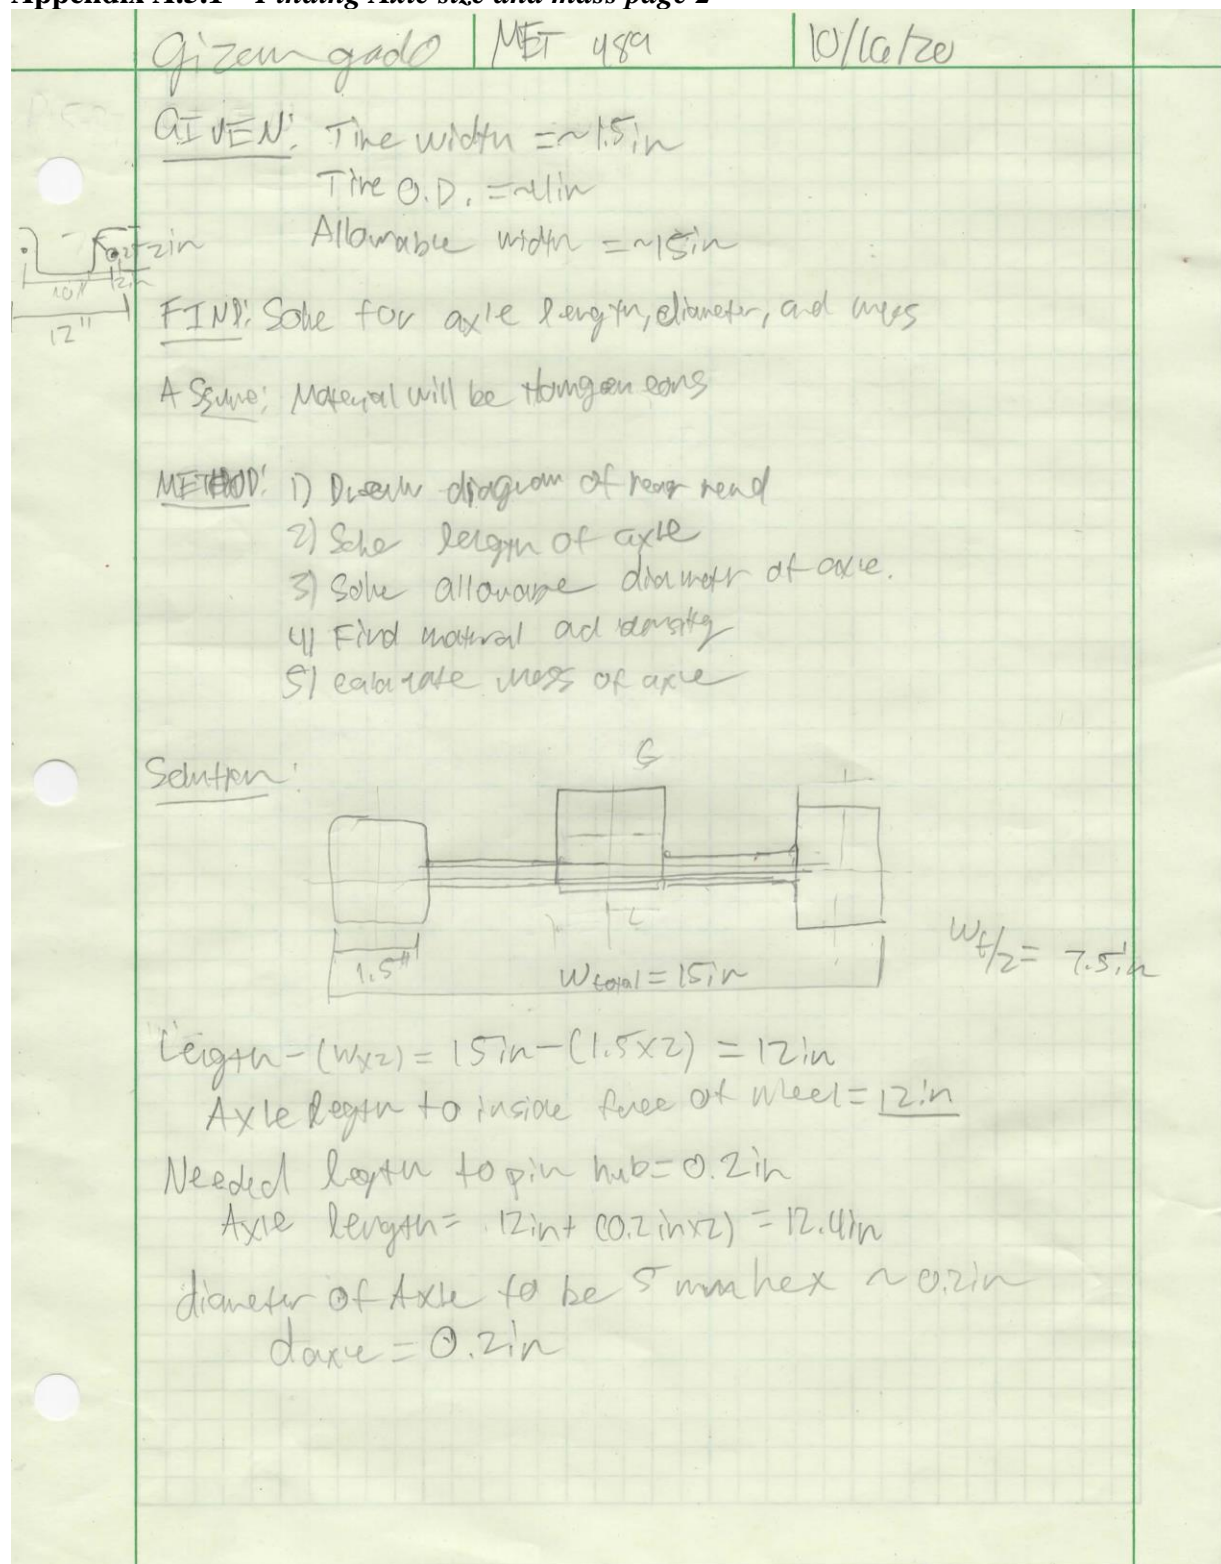 Appendix A.5.1 – Finding Axle size and mass page 2
Gizem gado MET 489 10/16/20
GIVEN: Tire width = ~1.5in
Tire O.D. = ~4in
Allowable width = ~15in
2in
10"
2in
12"
FIND: Solve for axle length, diameter, and mass
Assume: Material will be Homgeneous
METHOD: 1) Draw diagram of rear
2) Solve length of axle
3) Solve allowable diameter of axle.
4) Find material ad density
5) calculate mass of axle
Solution:
1.5"
Wtotal = 15in
Wt/2 = 7.5in
Length - (Wx2) = 15in - (1.5x2) = 12in
Axle length to inside face of wheel = 12in
Needed length to pin hub = 0.2in
Axle length = 12in + (0.2inx2) = 12.4in
diameter of Axle to be 5mm hex ~ 0.2in
daxle = 0.2in